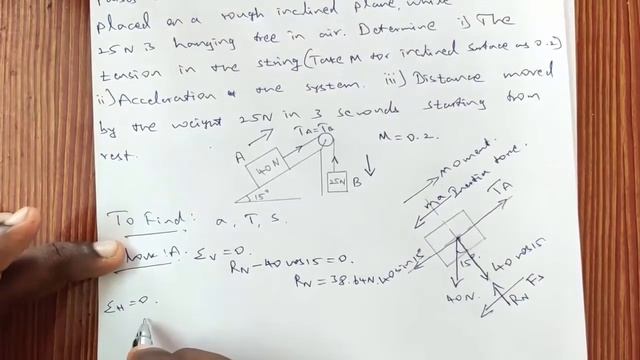 placed on a rough inclined plane, while
25N is hanging free in air. Determine i) The
tension in the string (Take M for inclined surface as 0.2)
ii) Acceleration the system. iii) Distance moved
by the weight 25N in 3 seconds starting from
rest.
TA=TB
M = 0.2.
A
40N
25N
B
15°
moment.
ma Inertia force.
TA
To Find: a, T, S.
Block 'A': ΣV=0.
RN - 40 cos15 = 0.
RN = 38.64N.
40 sin 15°
15°
40 cos15
40N.
RN
ΣH = 0.